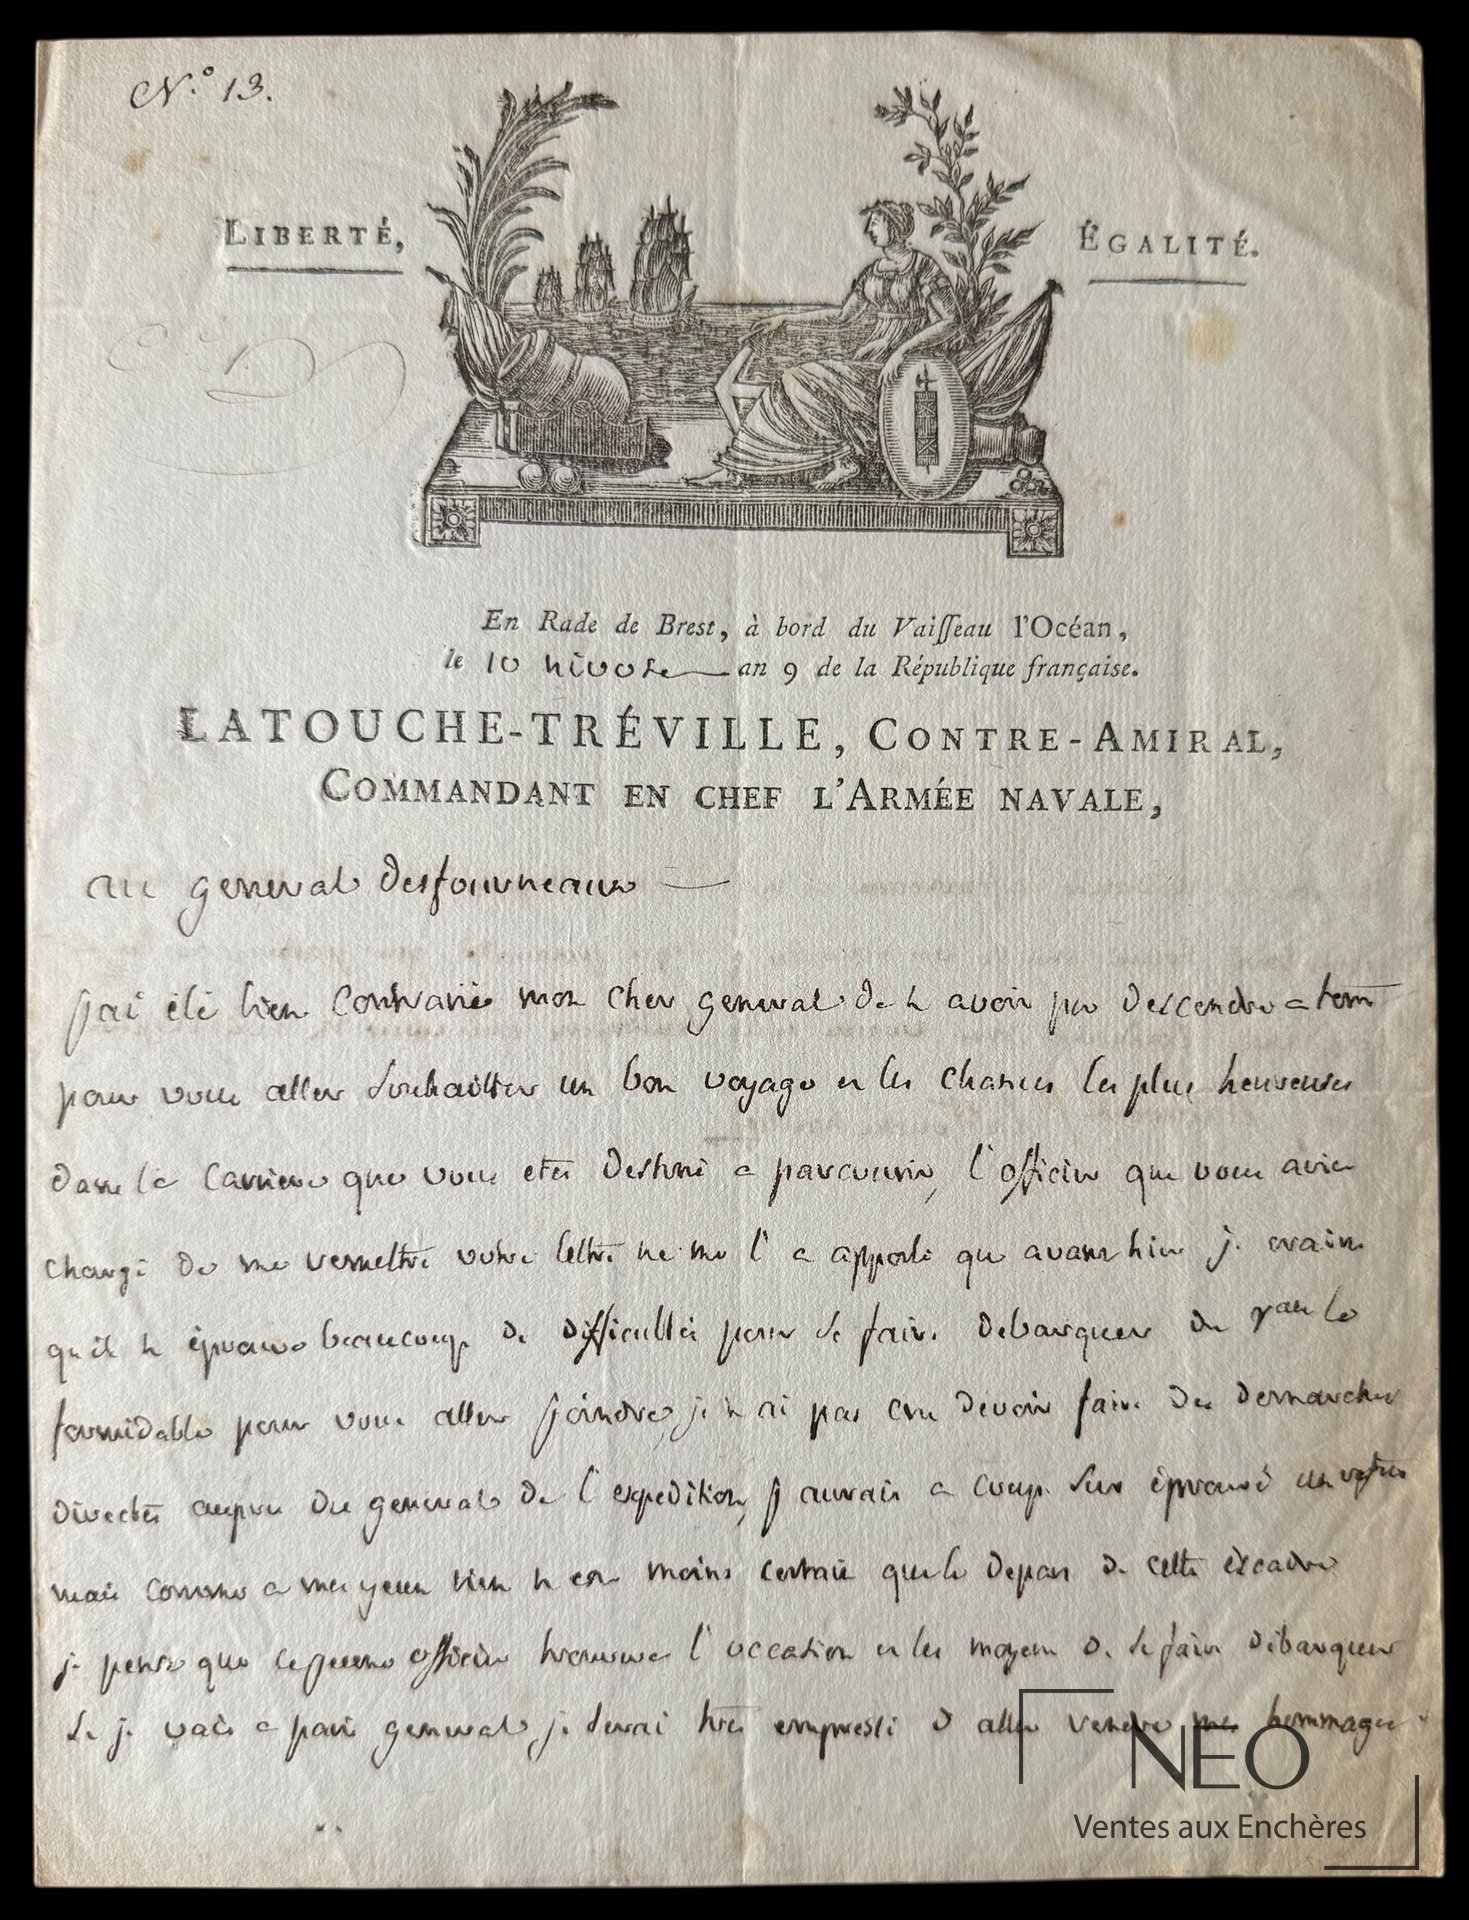 N.° 13.
LIBERTÉ,
ÉGALITÉ.
En Rade de Brest, à bord du Vaisseau l'Océan,
le 10 nivose an 9 de la République française.
LATOUCHE-TRÉVILLE, CONTRE-AMIRAL,
COMMANDANT EN CHEF L'ARMÉE NAVALE,
au general desfourneaux
j'ai été bien contrarié mon cher general de n avoir pu descendre a terre
pour vous aller souhaitter un bon voyage et les chances les plus heureuses
dans la carriere que vous etes destiné a parcourir, l'officier que vous aviez
chargé de me remettre votre lettre ne me l'a apporté qu avant hier je crains
qu il n éprouve beaucoup de difficultés pour se faire debarquer du vau le
formidable pour vous aller joindre, je n ai pas cru devoir faire des demarches
directes aupres du general de l'expedition, j aurais a coup sur éprouvé un refus
mais comme a mes yeux rien n est moins certain que le depart de cette éscadre
je pense que ce jeune officier trouvera l'occasion et les moyens de se faire débarquer
se je vais a paris general je serai très empressé d aller rendre mes hommages
NEO
Ventes aux Enchères